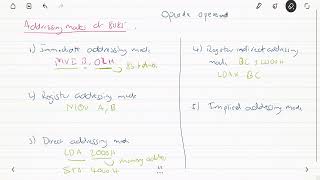 Opcode operand
Addressing modes of 8085
1) Immediate addressing mode
MVI B, 02H
2) Register addressing mode
MOV A, B
3) Direct addressing mode
LDA 2000H
memory address
STA 4000H
4) Register indirect addressing
mode BC
LDAX BC
5) Implied addressing mode